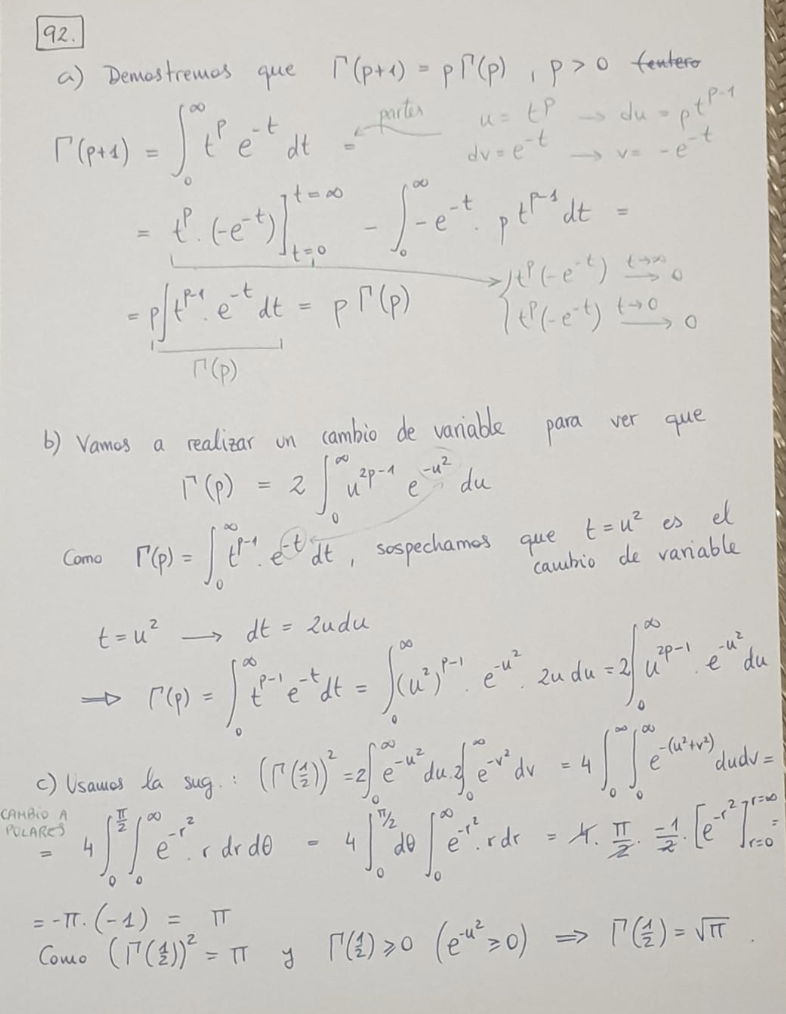 92.
a) Demostremos que Γ(p+1) = pΓ(p) , p > 0 entero
Γ(p+1) = ∫₀^∞ t^p e^{-t} dt = partes u = t^p → du = p t^{p-1}
dv = e^{-t} → v = -e^{-t}
= t^p · (-e^{-t}) ]_{t=0}^{t=∞} - ∫₀^∞ -e^{-t} · p t^{p-1} dt =
{ t^p (-e^{-t}) →^{t→∞} 0
= p ∫ t^{p-1} · e^{-t} dt = p Γ(p) { t^p (-e^{-t}) →^{t→0} 0
Γ(p)
b) Vamos a realizar un cambio de variable para ver que
Γ(p) = 2 ∫₀^∞ u^{2p-1} e^{-u²} du
Como Γ(p) = ∫₀^∞ t^{p-1} · e^{-t} dt , sospechamos que t = u² es el
cambio de variable
t = u² → dt = 2u du
⟹ Γ(p) = ∫₀^∞ t^{p-1} e^{-t} dt = ∫₀^∞ (u²)^{p-1} · e^{-u²} · 2u du = 2 ∫₀^∞ u^{2p-1} · e^{-u²} du
c) Usamos la sug. : (Γ(1/2))² = 2 ∫₀^∞ e^{-u²} du · 2 ∫₀^∞ e^{-v²} dv = 4 ∫₀^∞ ∫₀^∞ e^{-(u²+v²)} du dv =
CAMBIO A
POLARES
= 4 ∫₀^{π/2} ∫₀^∞ e^{-r²} · r dr dθ = 4 ∫₀^{π/2} dθ ∫₀^∞ e^{-r²} · r dr = 4 · π/2 · -1/2 · [e^{-r²}]_{r=0}^{r=∞} =
= -π · (-1) = π
Como (Γ(1/2))² = π y Γ(1/2) ≥ 0 (e^{-u²} ≥ 0) ⟹ Γ(1/2) = √π .